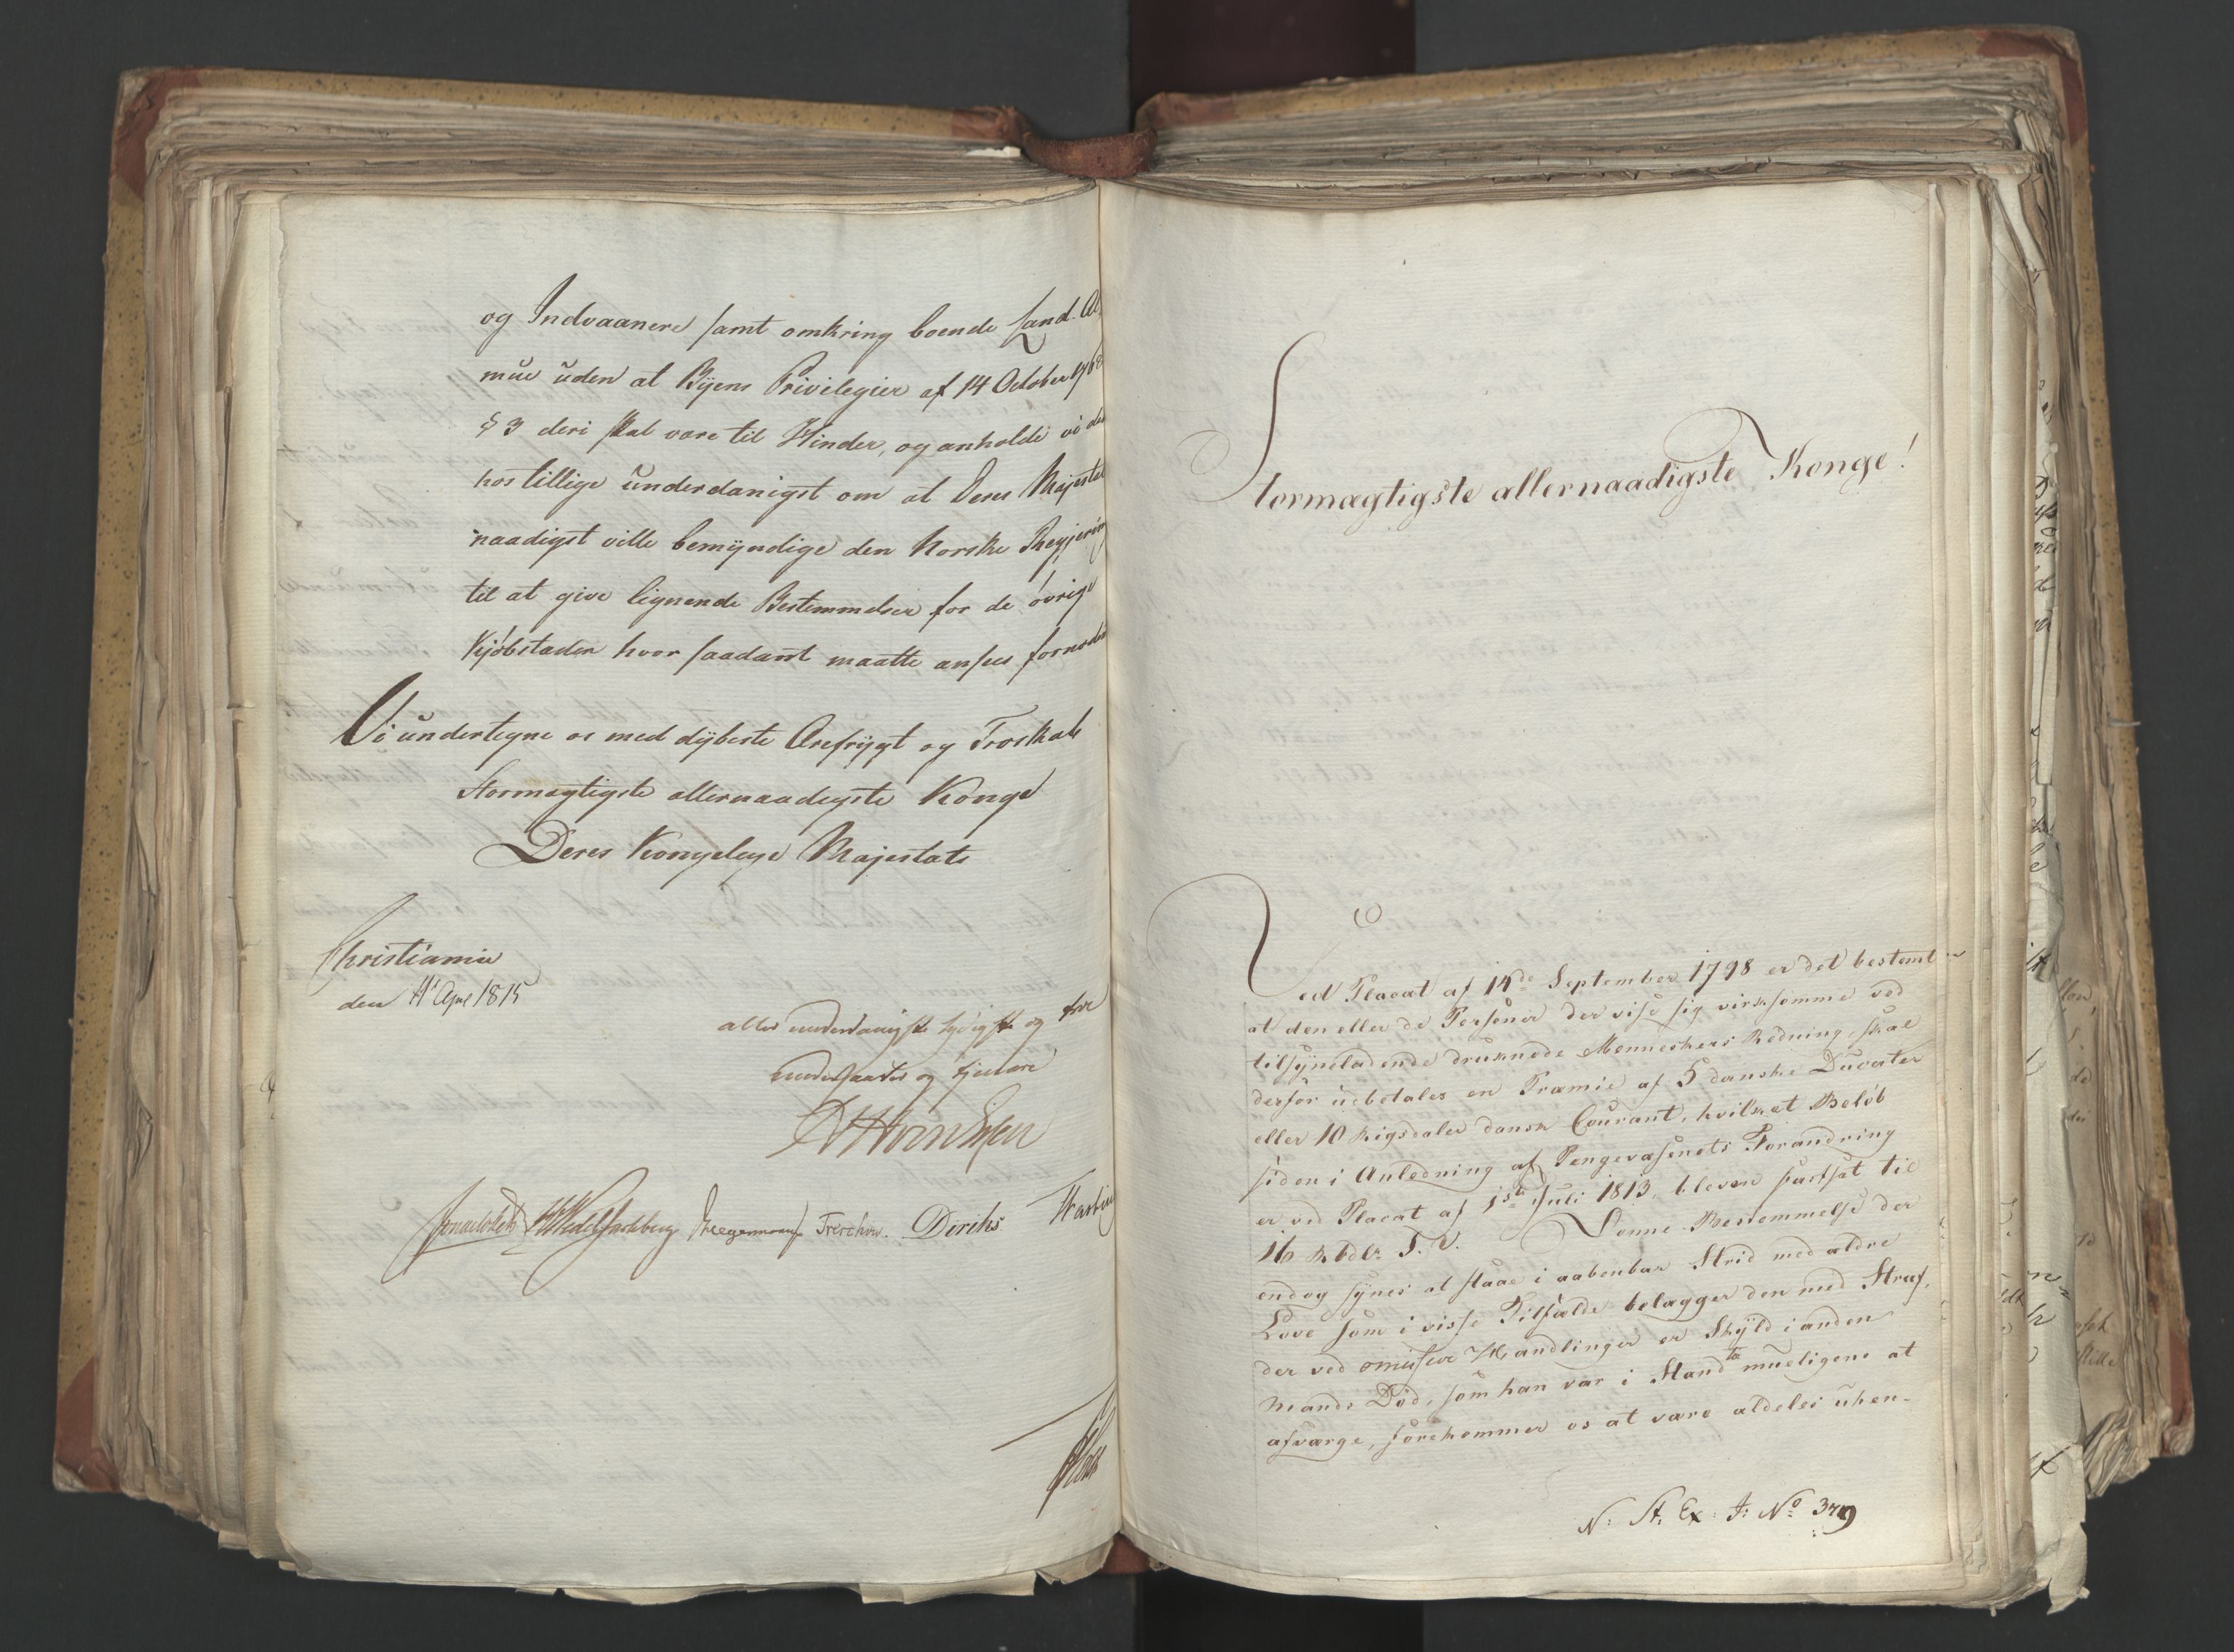 og Indvaanere samt omkring boende Land. Al
mue uden at Byens Privilegier af 14 October 1768
§ 3 deri skal være til Hinder, og anholde vi der
hos tillige underdanigst om at Deres Majestæt
naadigst ville bemyndige den Norske Regjering
til at give lignende Bestemmelser for de øvrige
Kjøbstæder hvor saadant maatte ansees fornøden
Vi undertegne os med dybeste Ærefrygt og Troskab
Stormægtigste allernaadigste Konge
Deres Kongelige Majestæts
Christiania
den 11 April 1815
aller underdanigste lydigste og troe
undersaatter og tjenere
Treschow. Diriks
Stormægtigste allernaadigste Konge!
Ved Placat af 14de September 1798 er det bestemt
at den eller de Personer der vise sig virksomme ved
tilsyneladende druknede Menneskers Redning, skal
derfor udbetales en Præmie af 5 danske Ducater
eller 10 Rigsdaler dansk Courant, hvilket Beløb
siden i Anledning af Pengevæsenets Forandring
er ved Placat af 1ste Juli 1813, bleven fastsat til
16 Rbdlr. S. V. Denne Bestemmelse der
endog synes at staae i aabenbar Strid med ældre
Love som i visse Tilfælde belægger den med Straf,
der ved omissive Handlinger er Skyld i anden
Mands Død, som han var i Stand ta mueligene at
afværge, forekommer os at være aldeles uhen-
N: St. Ex: J: No 379